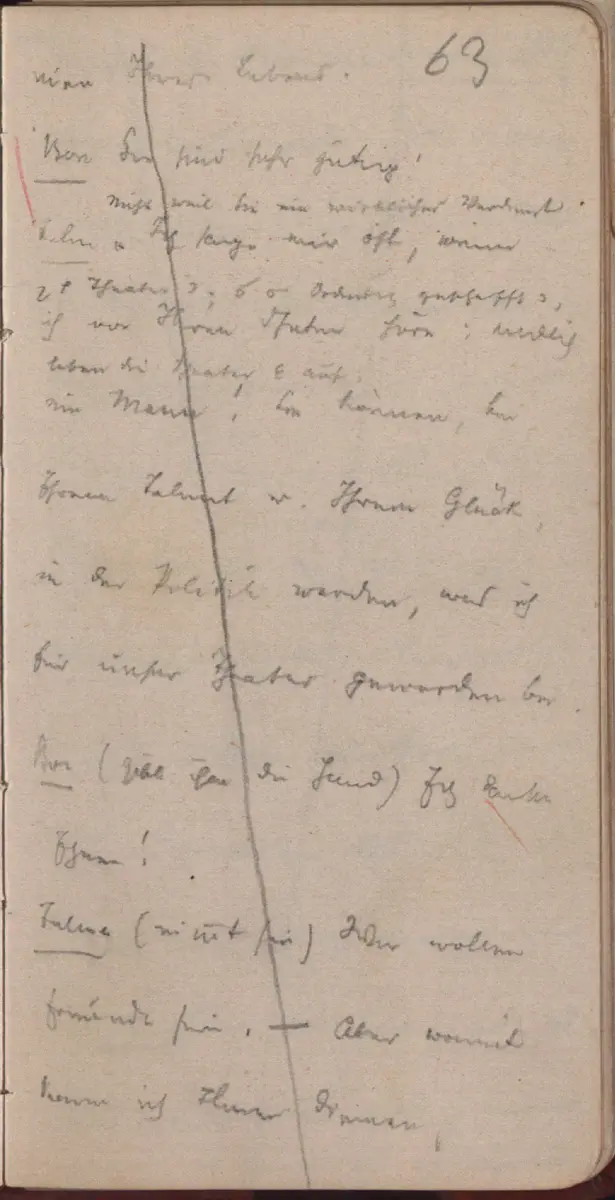 63
Ihres Lebens.
Bon Sie sind sehr gütig!
nicht weil Sie ein wirklicher Verdienst
Talma Ich sage mir oft, wenn
Theater Ordnung geschafft
ich von Ihren Thaten höre: endlich
leben die Theater auf.
ein Mann! Sie können, bei
Ihrem Talent u. Ihrem Glück,
in der Politik werden, was ich
für unser Theater geworden bin.
Bon (gibt ihm die Hand) Ich danke
Ihnen!
Talma (nimmt sie) Wir wollen
Freunde sein. — Aber womit
kann ich Ihnen dienen,